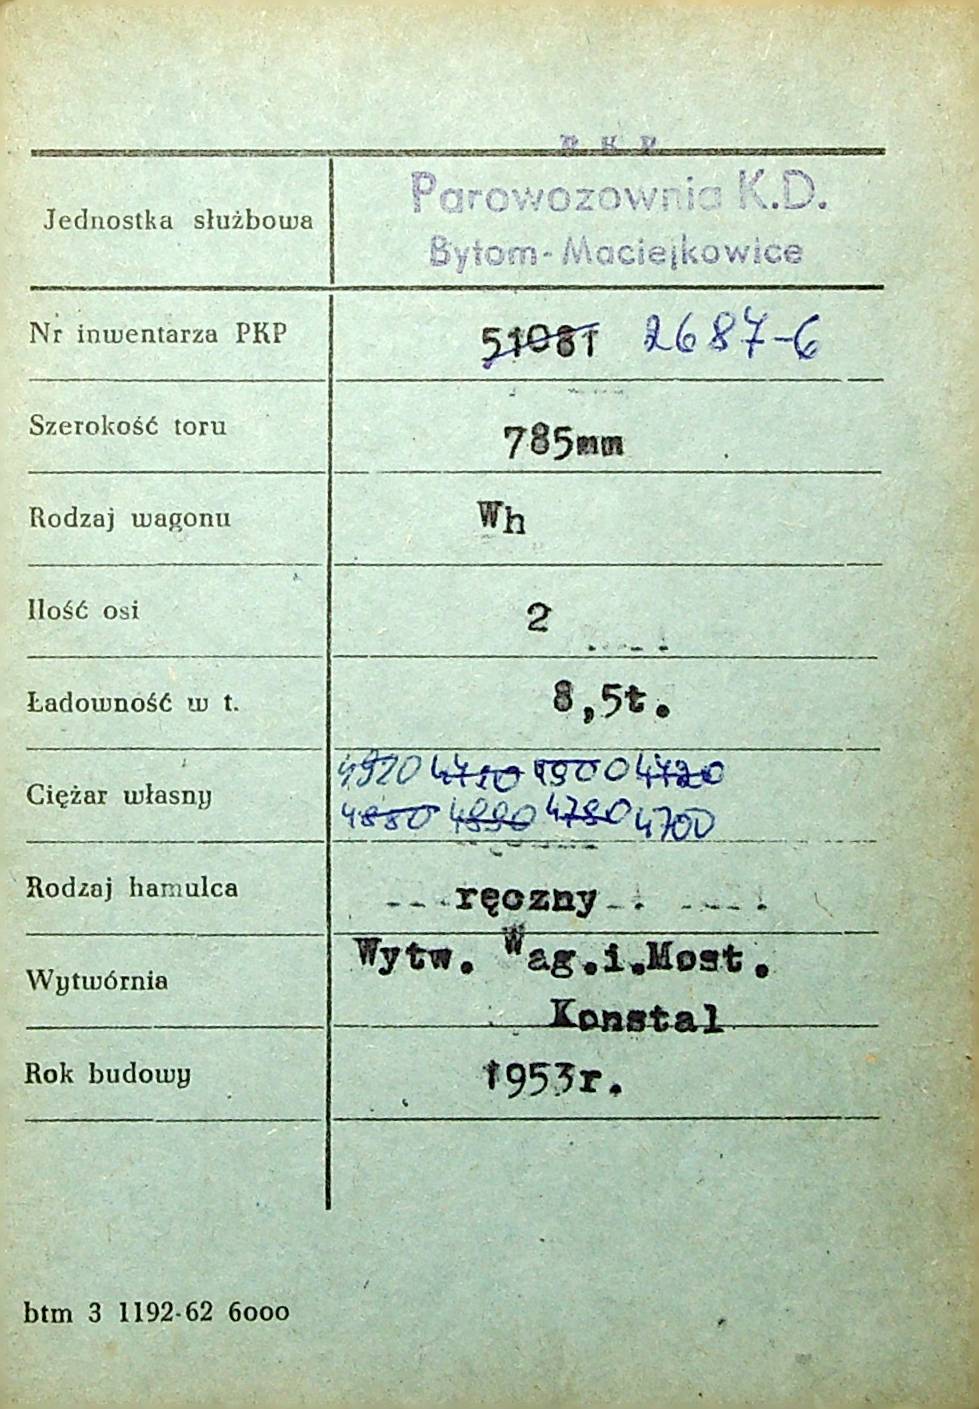 P K P
Jednostka służbowa Parowozownia K.D.
Bytom-Maciejkowice
Nr inwentarza PKP 51081 2687-6
Szerokość toru 785mm
Rodzaj wagonu Wh
Ilość osi 2
Ładowność w t. 8,5t.
Ciężar własny 4920 4710 4900 4720
4850 4890 4780 4700
Rodzaj hamulca ręczny
Wytwórnia Wytw. Wag.i.Most.
Konstal
Rok budowy 1953r.
btm 3 1192-62 6000